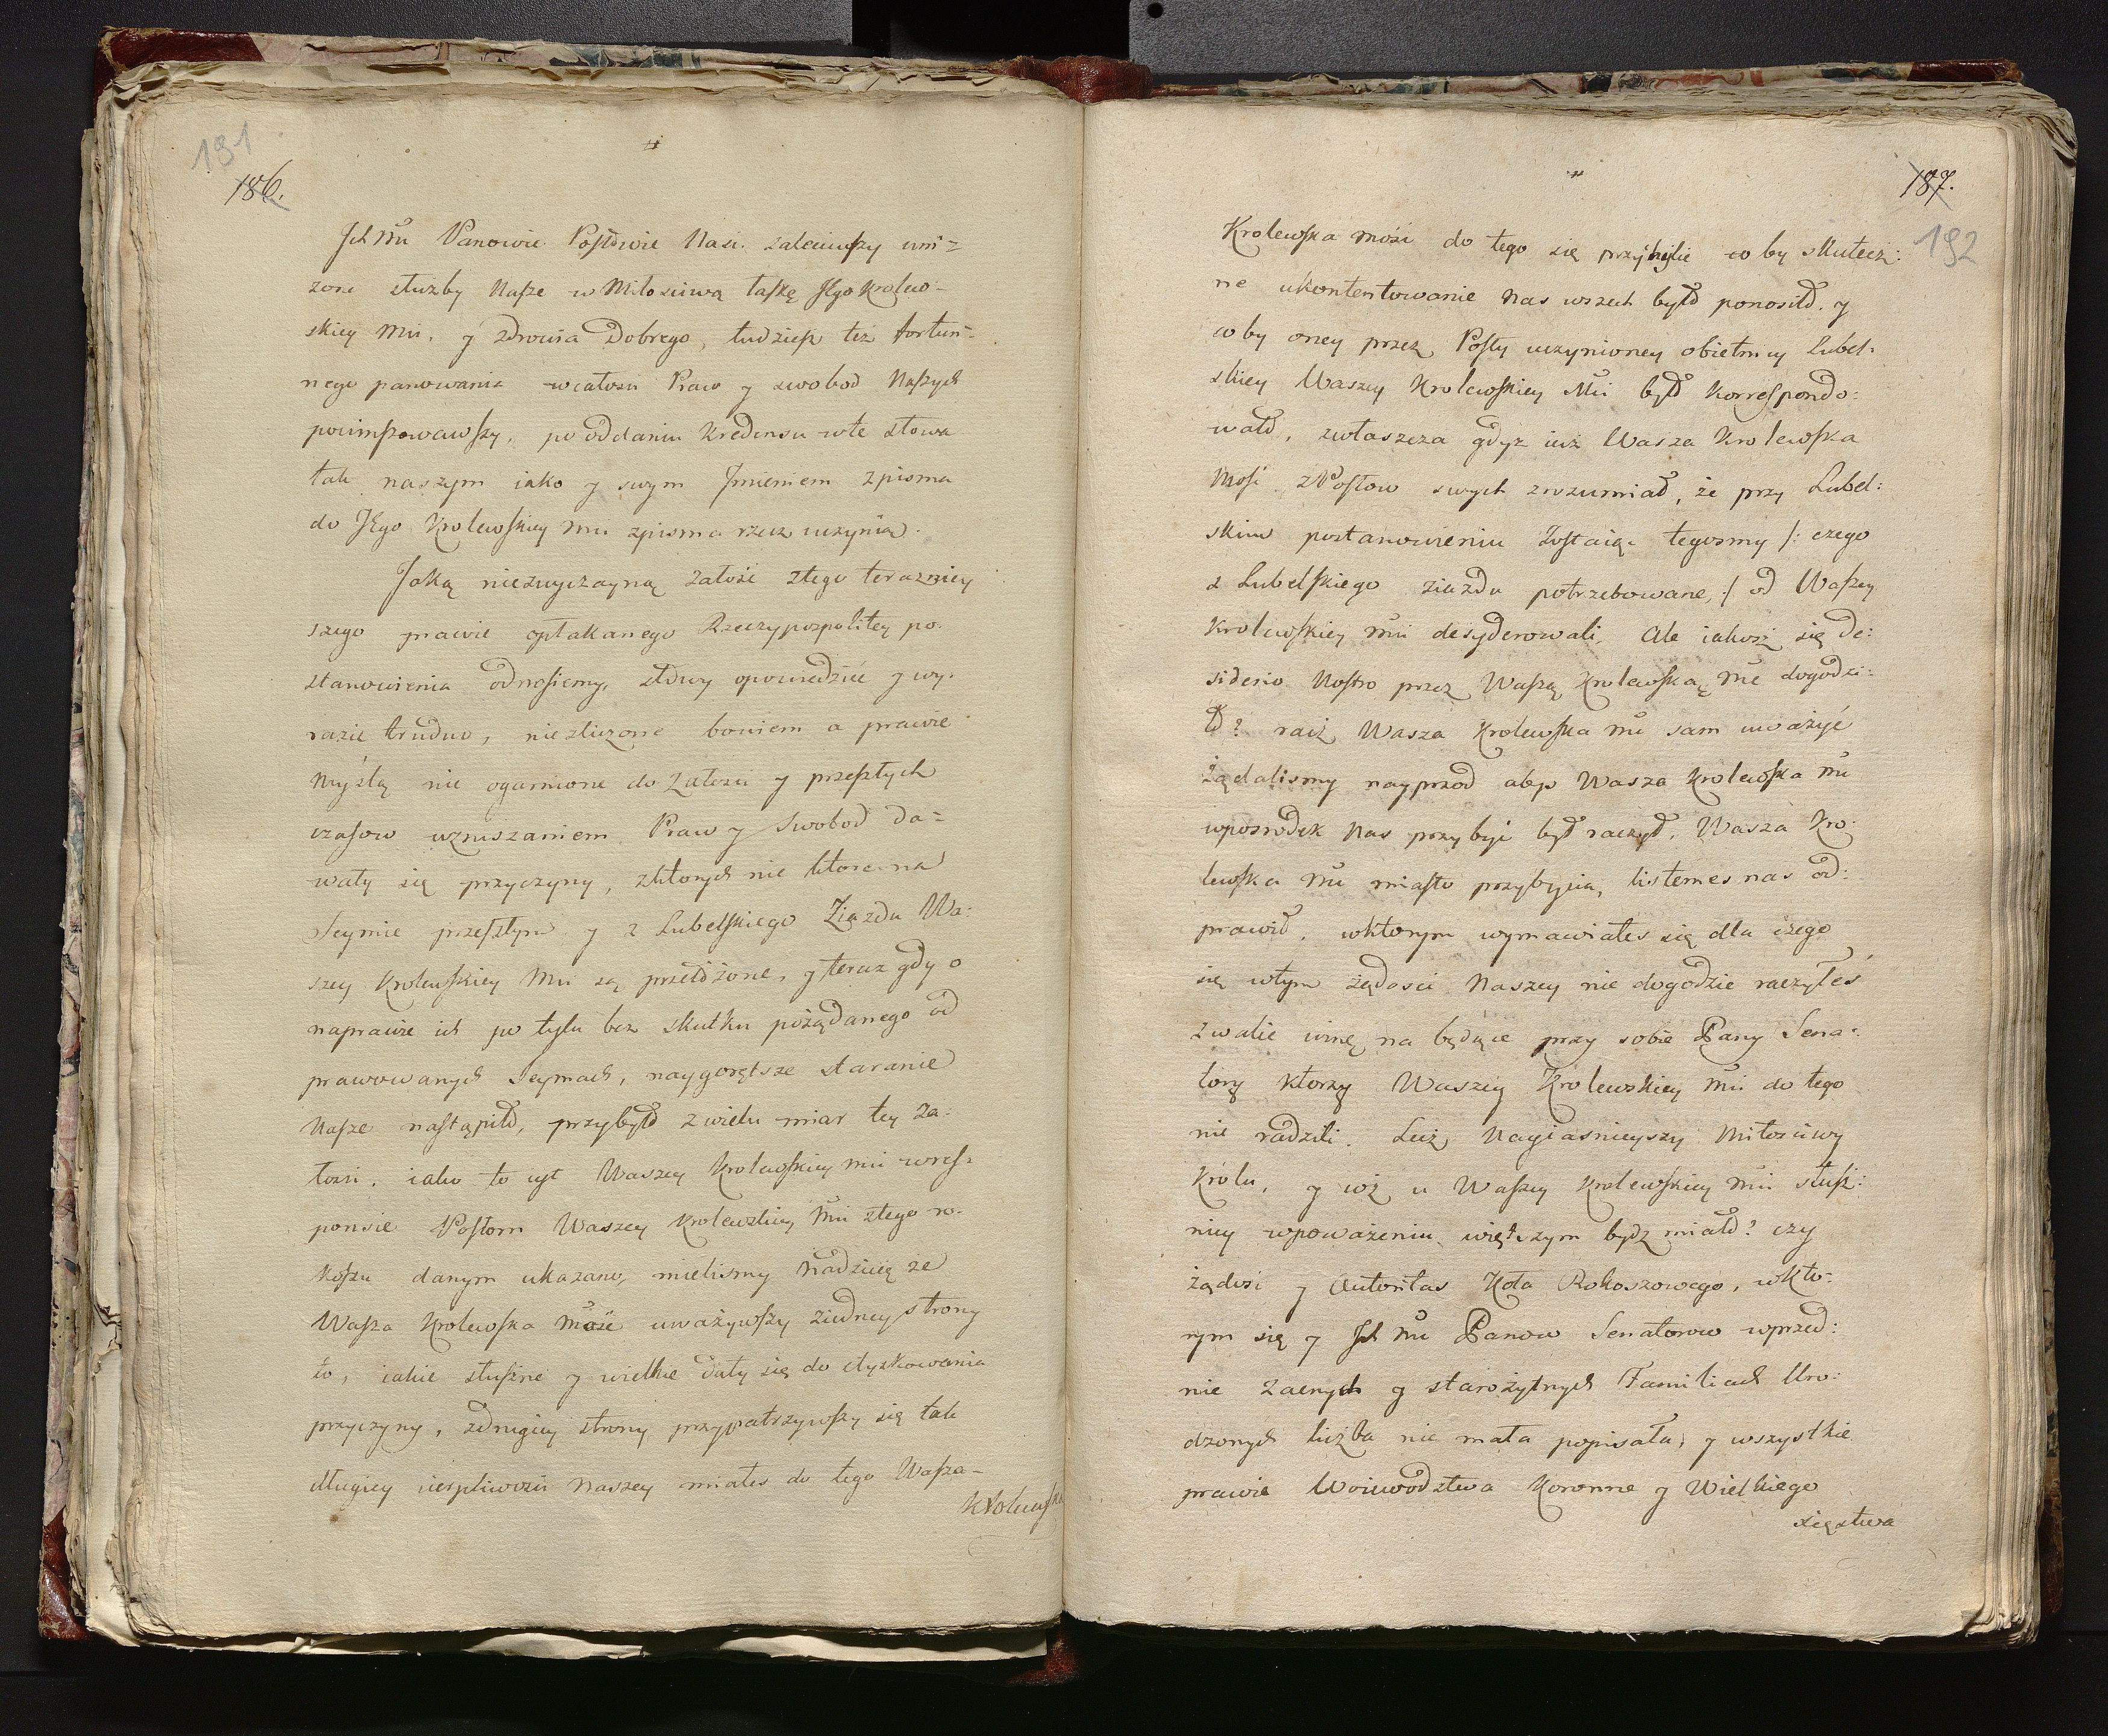 191
186.
Jch Mu Panowie Posłowie Nasi. zaleciwszy uni=
zone służby Nasze w Miłosciwą łaskę JEgo Krolew=
skiey Mci. y zdrowia Dobrego, tudziesz też fortun=
nego panowania wcałosci Praw y swobod Naszych
powinszowawszy, po oddaniu Kredensu wte słowa
tak naszym iako y swym Jmieniem z pisma
do JEgo Krolewskiey Mci z pisma rzecz uczynią.
Jaką niezwyczayną załość z tego terazniey
szego prawie opłakanego Rzeczypospolitey po-
stanowienia odnosiemy, słowy opowiedzieć y wy-
razić trudno, niezliczone bowiem a prawie
Myślą nie ogarnione do żałosci y przeszłych
czasow wzruszaniem Praw y Swobod da=
wały się przyczyny, z ktorych nie ktore na
Seymie przeszłym y z Lubelskiego Ziazdu Wa:
szey Krolewskiey Mci są przełożone, y teraz gdy o
naprawie ich po tylu bez skutku pożądanego od
prawowanych Seymach, naygorętsze staranie
Nasze nastąpiło, przybyło z wielu miar tey ża:
łosci, iako to iest Waszey Krolewskiey Mci wres-
ponsie Posłom Waszey Krolewskiey Mci z tego ro-
koszu danym ukazano, mielismy nadzieię że
Wasza Krolewska Mość uważywszy ziedney strony
to, iakie słuszne y wielkie dały się do utyskowania
przyczyny, z drugiey strony przypatrzywszy się tak
długiey cierpliwosci Naszey miałes do tego Wasza-
Krolewska
187.
192
Krolewska Mość do tego się przychylić co by skutecz:
ne ukontentowanie Nas wszech było ponosiło. y
co by oney przez Posły uczynioney obietnicy Lubel-
skiey Waszey Krolewskiey Mci było Korrespondo:
wało, zwłaszcza gdyż iuż Wasza Krolewska
Mość z Posłow swych zrozumiał, że przy Lubel:
skim postanowieniu zostaiąc tegosmy /: czego
z Lubelskiego ziazdu potrzebowane, :/ od Waszey
Krolewskiey Mci desyderowali. Ale iakosz się de:
siderio Nostro przez Waszą Krolewską Mc dogodzi:
ło? racz Wasza Krolewska Mć sam uważyć
Żądalismy nayprzod aby Wasza Krolewska Mć
wposrodek Nas przybyć był raczył. Wasza Kro:
lewska Mć miasto przybycia, listemes nas od:
prawił, wktorym wymawiałes się dla czego
się wtym żądosci Naszey nie dogodzić raczyłeś
zwalić winę na będące przy sobie Pany Sena:
tory ktorzy Waszey Krolewskiey Mci do tego
nie radzili. Lecz Nayiasnieyszy Miłosciwy
Królu, y coż u Waszey Krolewskiey Mci słusz:
niey wpoważeniu więtszym bydz miało? czy
żądosi y Autoritas Koła Rokoszowego, wkto:
rym się y Jch Mć Panow Senatorow wprzed:
nie zacnych y starożytnych Familiach Uro:
dzonych liczba nie mała popisała, y wszystkie
prawie Woiewodztwa Koronne y Wielkiego
sięstwa